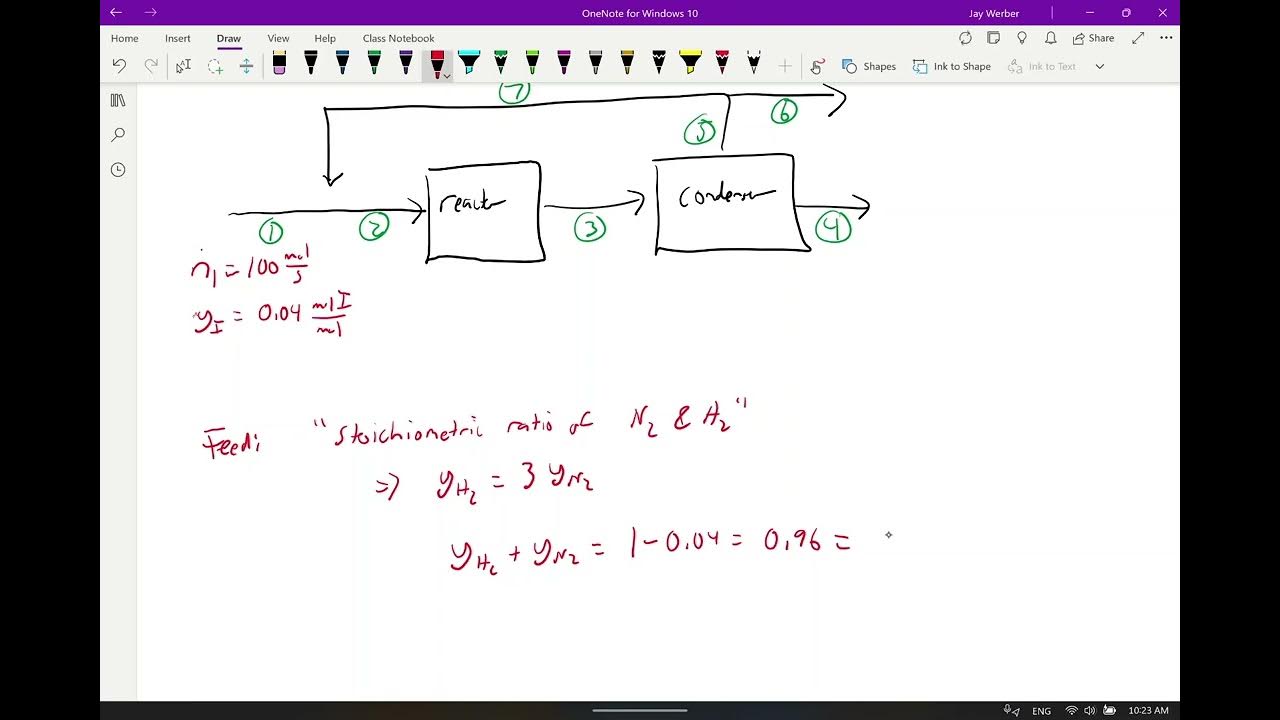 OneNote for Windows 10
Jay Werber
Home Insert Draw View Help Class Notebook
Share
Shapes
Ink to Shape
Ink to Text
7
6
5
reactor
condenser
1
2
3
4
ṅ₁ = 100 mol/s
y_I = 0.04 mol I/mol
Feed: "stoichiometric ratio of N₂ & H₂"
=> y_H₂ = 3 y_N₂
y_H₂ + y_N₂ = 1 - 0.04 = 0.96 =
ENG
10:23 AM